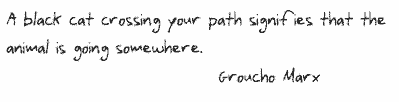 A black cat crossing your path signifies that the
animal is going somewhere.
Groucho Marx